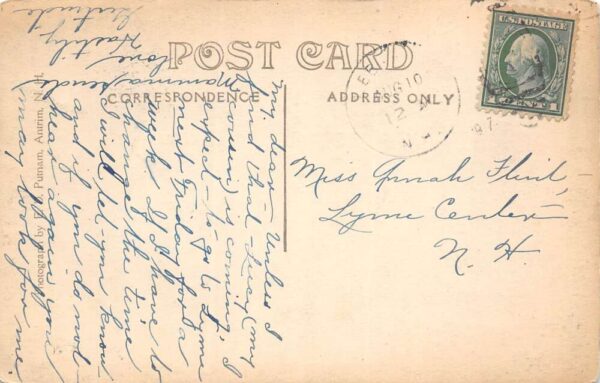 POST CARD
CORRESPONDENCE
ADDRESS ONLY
U.S. POSTAGE
1 CENT 1
AUG 10
12
N.H.
Miss Annah Flint -
Lyme Center -
N. H.
My dear - Unless I
find that Lucy (my
cousin) is coming, I
expect - to go to Lyme
next Friday for a
week. If I have to
change the time
I will let - you know
and if you do not -
hear again, you
may look for me.
Mamma sends
love.
Hastily
Gertrude
Photograph by Putnam, Antrim, N. H.